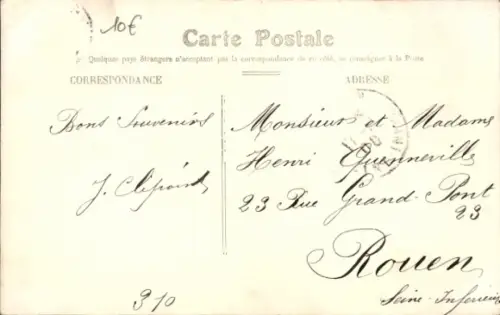 10€
Carte Postale
Quelques pays étrangers n'acceptent pas la correspondance de ce côté, se renseigner à la Poste
CORRESPONDANCE
ADRESSE
Bons Souvenirs
Monsieur et Madame
Henri Quenneville
23 Rue Grand-Pont
23
Rouen
Seine-Inférieure
310